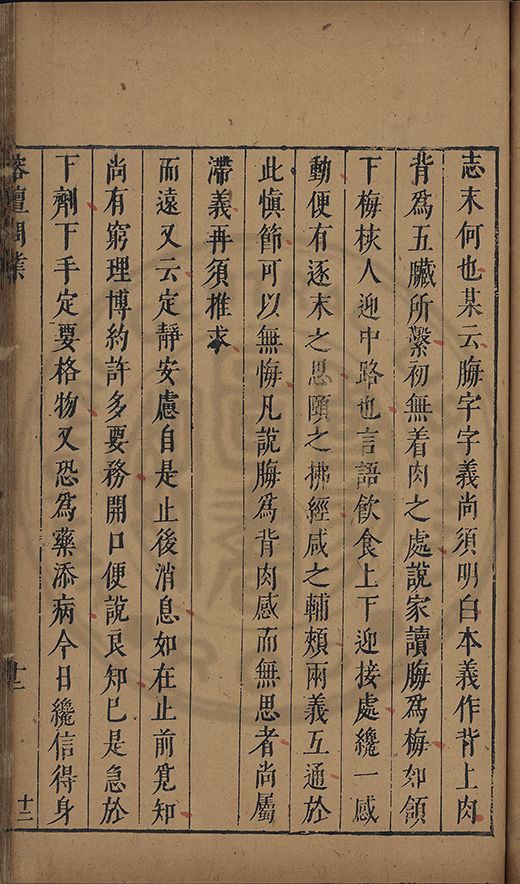 志末何也某云脢字字義尚須明白本義作背上肉
背爲五臟所繫初無着肉之處說家讀脢爲梅如頷
下梅核人迎中路也言語飮食上下迎接處纔一感
動便有逐末之思頤之拂經咸之輔頰兩義互通於
此愼節可以無悔凡說脢爲背肉感而無思者尚屬
滯義再須推求
而遠又云定靜安慮自是止後消息如在止前覓知
尚有窮理博約許多要務開口便說良知已是急於
下劑下手定要格物又恐爲藥添病今日纔信得身
榕壇問業
十二
十二